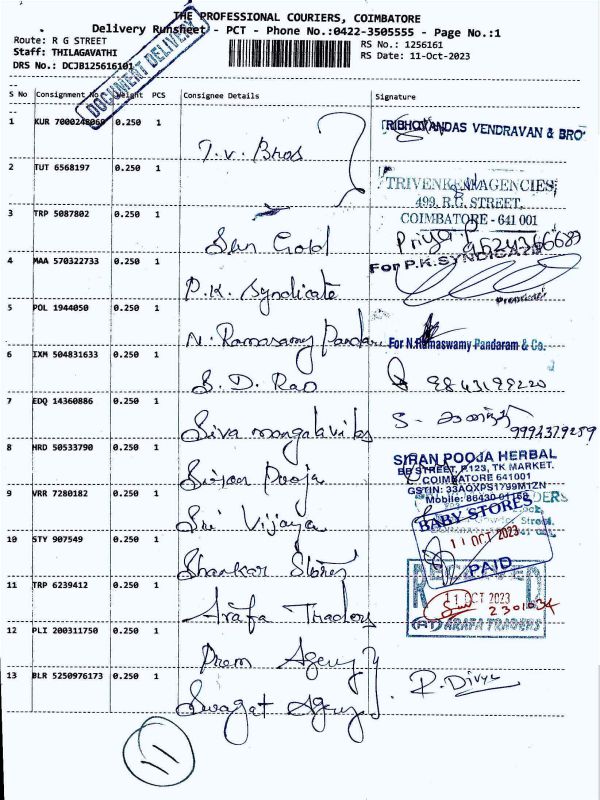 THE PROFESSIONAL COURIERS, COIMBATORE
Delivery Runsheet - PCT - Phone No.:0422-3505555 - Page No.:1
Route: R G STREET
Staff: THILAGAVATHI
DRS No.: DCJB125616101
RS No.: 1256161
RS Date: 11-Oct-2023
DOCUMENT DELIVERY
S No Consignment No Weight PCS Consignee Details Signature
1 KUR 7000248060 0.250 1 T.V. Bros TRIBHOVANDAS VENDRAVAN & BRO
2 TUT 6568197 0.250 1
TRIVENI AGENCIES
499, R.G. STREET,
COIMBATORE - 641 001
3 TRP 5087802 0.250 1 Sun Gold Priya 9624366689
4 MAA 570322733 0.250 1 P.K. Syndicate For P.K.SYNDICATE
5 POL 1944050 0.250 1 N. Ramasamy Pandaram For N.Ramaswamy Pandaram & Co.
6 IXM 504831633 0.250 1 S. D. Rao 9843199220
7 EDQ 14360886 0.250 1 Siva mangalavilas S. 9992379259
8 HRD 50533790 0.250 1 Siran Pooja
SIRAN POOJA HERBAL
BB STREET, P.123, TK MARKET.
COIMBATORE 641001
GSTIN: 33AOXPS1799M1ZN
Mobile: 86430 01168
9 VRR 7280182 0.250 1 Sri Vijaya
10 STY 907549 0.250 1 Shankar Stores
BABY STORES
11 OCT 2023
PAID
11 TRP 6239412 0.250 1 Arafa Traders
RECEIVED
11 OCT 2023
2301034
ARAFA TRADERS
12 PLI 200311750 0.250 1 Prem Agency
13 BLR 5250976173 0.250 1 Swagat Agency R. Divya
11